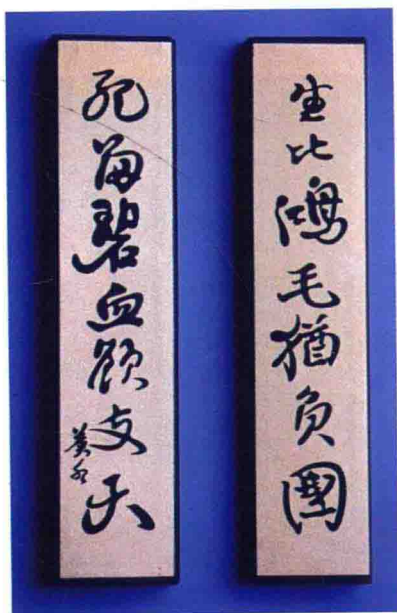 生比鴻毛猶負國
死留碧血欲支天
蒼水